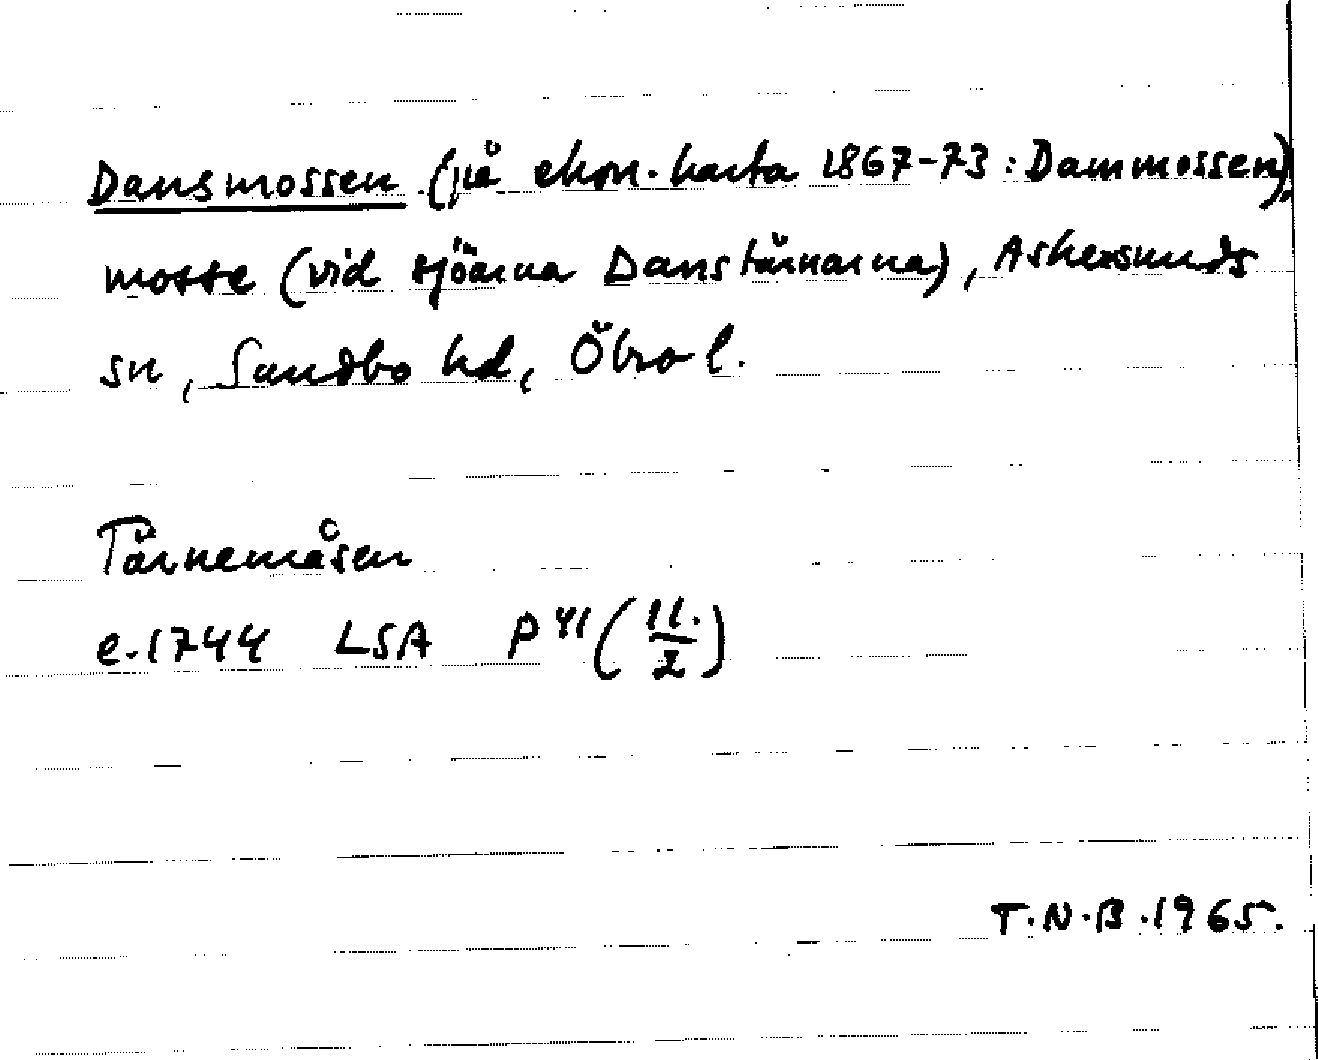 Dansmossen (på ekon. karta 1867-73: Dammossen),
mosse (vid sjöarna Danstärnarna), Askersunds
sn, Sundbo hd, Öbro l.
Tärnemåsen
e. 1744 LSA P 41 (11./2)
T.N.B. 1965.